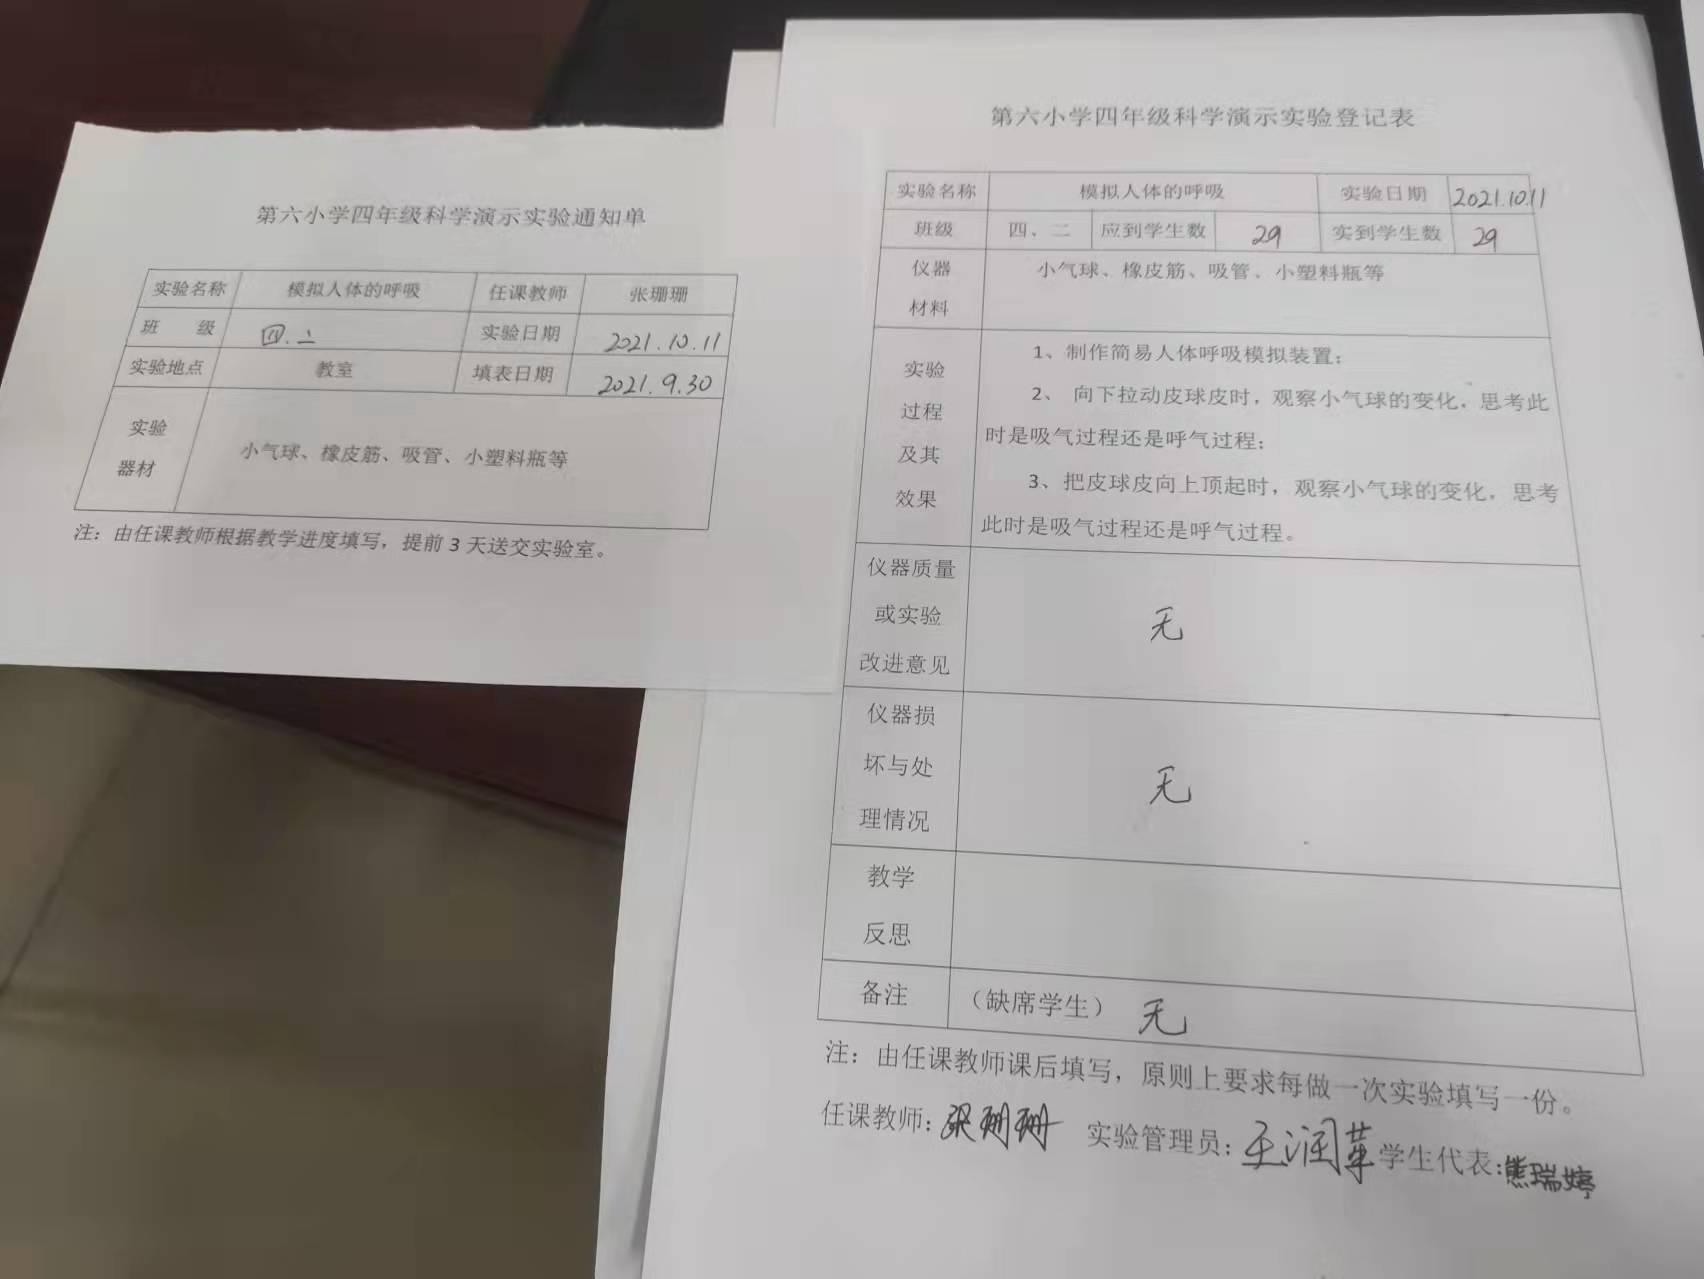 第六小学四年级科学演示实验通知单
实验名称 模拟人体的呼吸 任课教师 张珊珊
班 级 四.二 实验日期 2021.10.11
实验地点 教室 填表日期 2021.9.30
实验
器材
小气球、橡皮筋、吸管、小塑料瓶等
注：由任课教师根据教学进度填写，提前 3 天送交实验室。
第六小学四年级科学演示实验登记表
实验名称 模拟人体的呼吸 实验日期 2021.10.11
班级 四、二 应到学生数 29 实到学生数 29
仪器
材料
小气球、橡皮筋、吸管、小塑料瓶等
实验
过程
及其
效果
1、制作简易人体呼吸模拟装置；
2、 向下拉动皮球皮时，观察小气球的变化，思考此
时是吸气过程还是呼气过程；
3、把皮球皮向上顶起时，观察小气球的变化，思考
此时是吸气过程还是呼气过程。
仪器质量
或实验
改进意见
无
仪器损
坏与处
理情况
无
教学
反思
备注 （缺席学生） 无
注：由任课教师课后填写，原则上要求每做一次实验填写一份。
任课教师：张珊珊 实验管理员：王润苹 学生代表：熊瑞婷